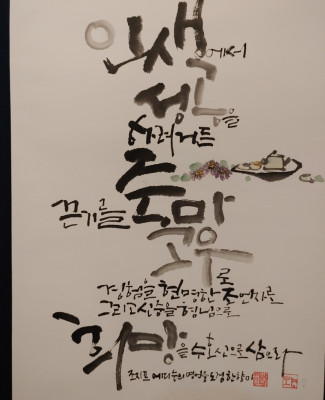 인생에서
성공을
하려거든
끈기를 죽마
고우로
경험을 현명한 조언자로
그리고 신중을 형님으로
희망을 수호신으로 삼으라
조지프 에디슨의 명언을